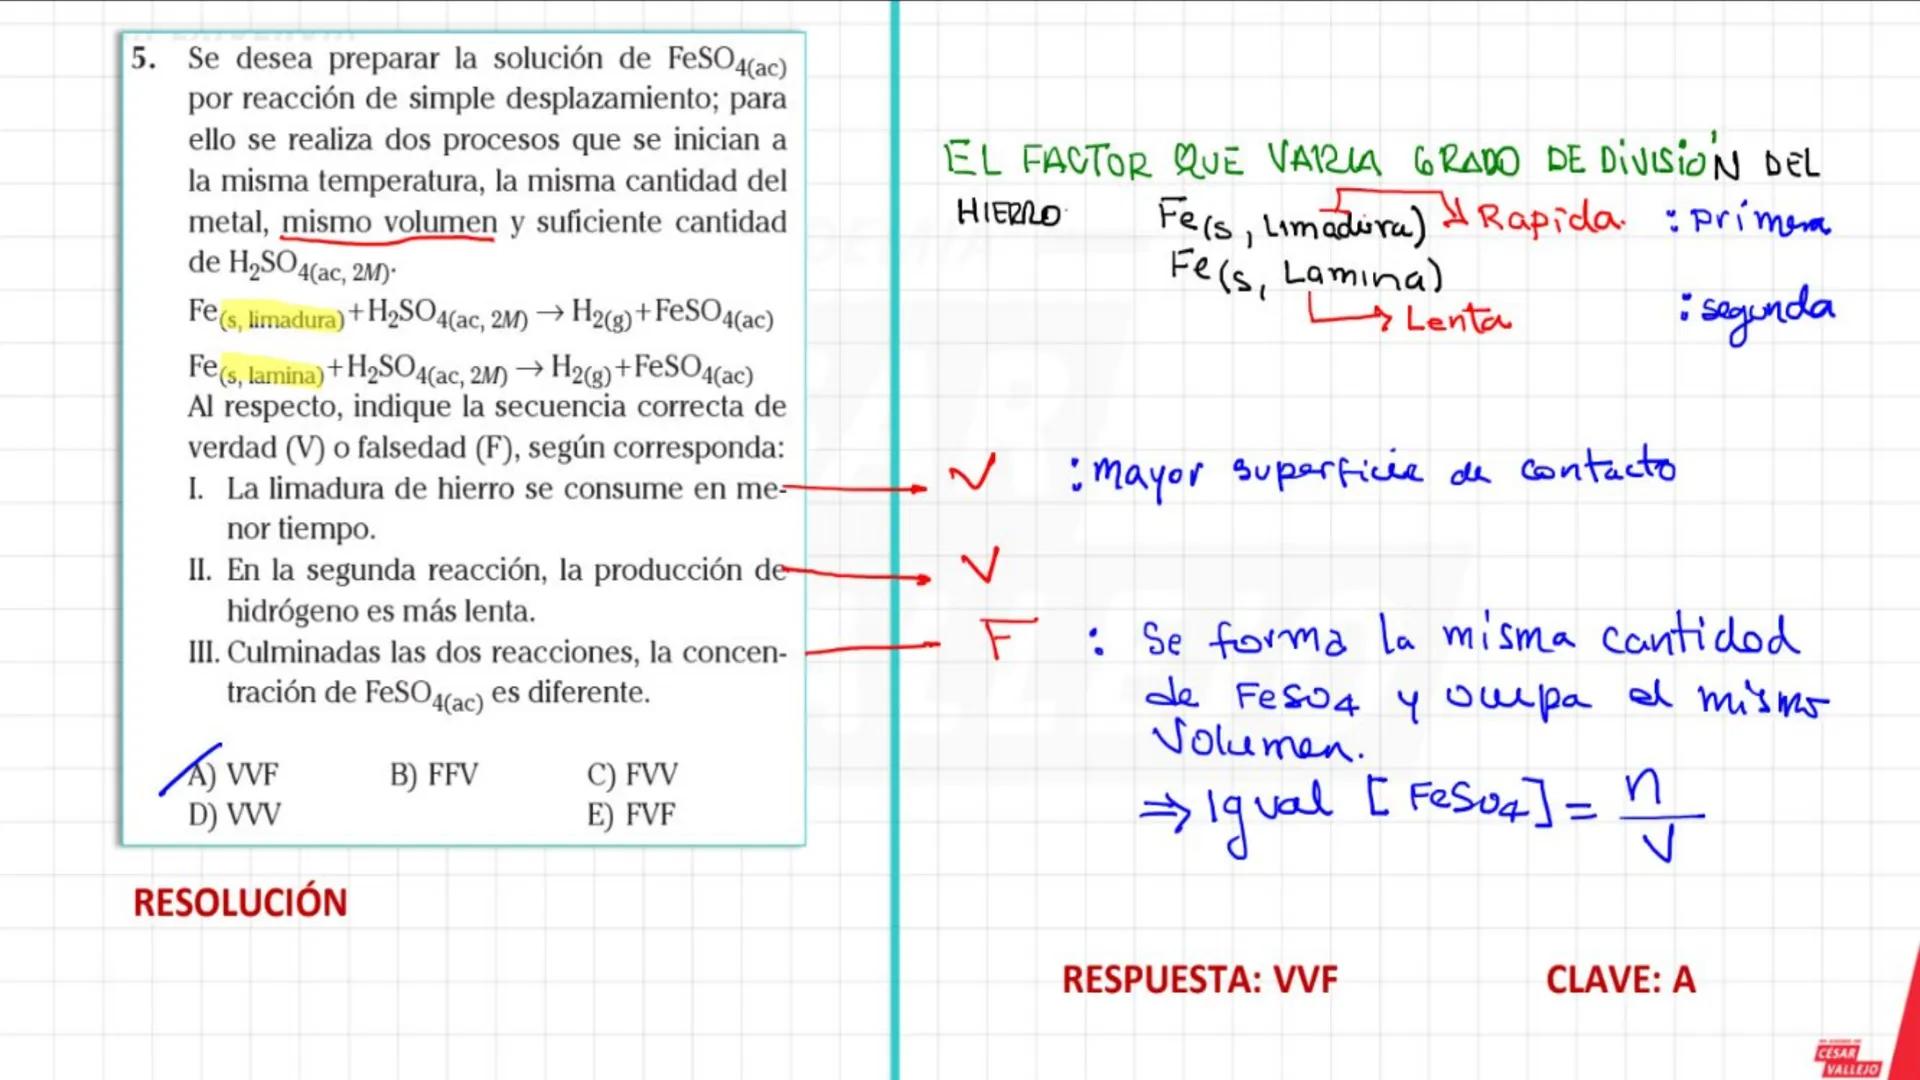 5. Se desea preparar la solución de FeSO4(ac)
por reacción de simple desplazamiento; para
ello se realiza dos procesos que se inician a
la misma temperatura, la misma cantidad del
metal, mismo volumen y suficiente cantidad
de H2SO4(ac, 2M).
Fe(s, limadura)+H2SO4(ac, 2M) → H2(g)+FeSO4(ac)
Fe(s, lamina)+H2SO4(ac, 2M) → H2(g)+FeSO4(ac)
Al respecto, indique la secuencia correcta de
verdad (V) o falsedad (F), según corresponda:
I. La limadura de hierro se consume en me-
nor tiempo.
II. En la segunda reacción, la producción de
hidrógeno es más lenta.
III. Culminadas las dos reacciones, la concen-
tración de FeSO4(ac) es diferente.
A) VVF B) FFV C) FVV
D) VVV E) FVF
RESOLUCIÓN
EL FACTOR QUE VARIA GRADO DE DIVISIÓN DEL
HIERRO Fe(s, Limadura) → Rapida : primera
Fe(s, Lamina)
→ Lenta : segunda
V : mayor superficie de contacto
V
F : Se forma la misma cantidad
de FeSO4 y ocupa el mismo
Volumen.
⇒ Igual [FeSO4] = n/V
RESPUESTA: VVF CLAVE: A
CÉSAR
VALLEJO